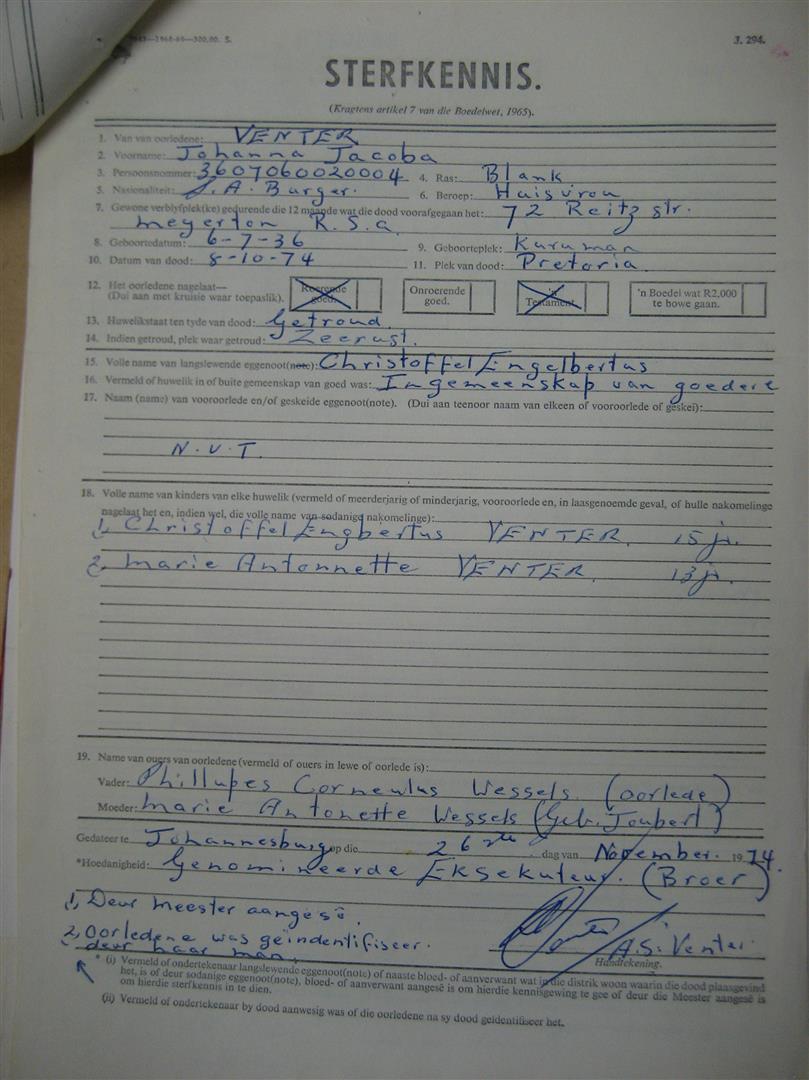 1968-69—300,00. S. J. 294.
STERFKENNIS.
(Kragtens artikel 7 van die Boedelwet, 1965).
1. Van van oorledene: VENTER
2. Voorname: Johanna Jacoba
3. Persoonsnommer: 3607060020004 4. Ras: Blank
5. Nasionaliteit: S.A. Burger. 6. Beroep: Huisvrou
7. Gewone verblyfplek(ke) gedurende die 12 maande wat die dood voorafgegaan het: 72 Reitz str.
Meyerton R.S.A.
8. Geboortedatum: 6-7-36 9. Geboorteplek: Kuruman
10. Datum van dood: 8-10-74 11. Plek van dood: Pretoria
12. Het oorledene nagelaat— Roerende goed. Onroerende goed. 'n Testament. 'n Boedel wat R2,000 te bowe gaan.
(Dui aan met kruisie waar toepaslik).
13. Huwelikstaat ten tyde van dood: Getroud
14. Indien getroud, plek waar getroud: Zeerust.
15. Volle name van langslewende eggenoot(note): Christoffel Engelbertus
16. Vermeld of huwelik in of buite gemeenskap van goed was: In gemeenskap van goedere
17. Naam (name) van vooroorlede en/of geskeide eggenoot(note). (Dui aan teenoor naam van elkeen of vooroorlede of geskei):
N.V.T.
18. Volle name van kinders van elke huwelik (vermeld of meerderjarig of minderjarig, vooroorlede en, in laasgenoemde geval, of hulle nakomelinge
nagelaat het en, indien wel, die volle name van sodanige nakomelinge):
1, Christoffel Engbertus VENTER. 15 jr.
2, Marie Antonnette VENTER. 13 jr.
19. Name van ouers van oorledene (vermeld of ouers in lewe of oorlede is):
Vader: Phillupes Corneulus Wessels. (oorlede)
Moeder: Marie Antonette Wessels (Geb. Joubert)
Gedateer te Johannesburg op die 26ste dag van November. 1974.
*Hoedanigheid: Genomineerde Eksekuteur. (Broer)
1, Deur Meester aangesê.
2, Oorledene was geïndentifiseer.
deur haar man. A.S. Venter
Handtekening.
* (i) Vermeld of ondertekenaar langslewende eggenoot(note) of naaste bloed- of aanverwant wat in die distrik woon waarin die dood plaasgevind
het, is of deur sodanige eggenoot(note), bloed- of aanverwant aangesê is om hierdie kennisgewing te gee of deur die Meester aangesê is
om hierdie sterfkennis in te dien.
(ii) Vermeld of ondertekenaar by dood aanwesig was of die oorledene na sy dood geidentifiseer het.